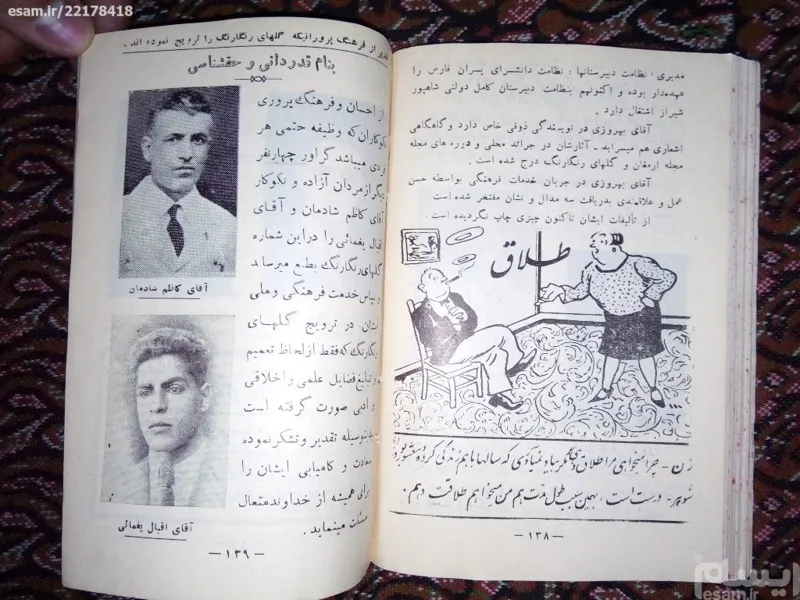 esam.ir/22178418
مدیری؛ نظامت دبیرستانها؛ نظامت دانشسرای پسران فارس را
عهده‌دار بوده و اکنونهم بنظامت دبیرستان کامل دولتی شاهپور
شیراز اشتغال دارد .
آقای بهروزی در نویسندگی ذوقی خاص دارد و گاهگاهی
اشعاری هم میسراید . آثارشان در جرائد محلی و دوره های مجله
مجله ارمغان و گلهای رنگارنگ درج شده است .
آقای بهروزی در جریان خدمات فرهنگی بواسطه حسن
عمل و علاقمندی بدریافت سه مدال و نشان مفتخر شده است .
از تألیفات ایشان تاکنون چیزی چاپ نگردیده است .
طلاق
زن - چرا میخواهی مرا طلاق دهی فکر بیاد سالها با هم زندگی کرده
شوهر - درست است . بهمین سبب طول مدت هم من میخواهم طلاقت دهم .
— ۱۳۸ —
از فرهنگ پرورانیکه گلهای رنگارنگ را ترویج نموده اند .
بنام قدردانی و حقشناسی
از احسان و فرهنگ پروری
نکوکاران که وظیفه حتمی هر
فردی میباشد گراور چهارنفر
دیگر از مردان آزاده و نکوکار
آقای کاظم شادمان و آقای
اقبال یغمائی را در این شماره
گلهای رنگارنگ بطبع میرساند
و بپاس خدمت فرهنگی و ملی
ایشان در ترویج گلهای
رنگارنگ که فقط از لحاظ تعمیم
و تبلیغ فضایل علمی و اخلاقی
و ادبی صورت گرفته است
بدینوسیله تقدیر و تشکر نموده
سعادت و کامیابی ایشان را
برای همیشه از خداوند متعال
مسئلت مینماید .
آقای کاظم شادمان
آقای اقبال یغمائی
— ۱۳۹ —
ایسام
esam.ir